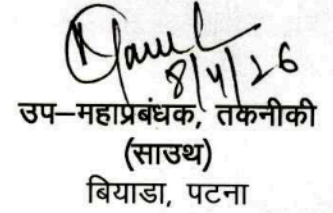 8/4/26
उप–महाप्रबंधक, तकनीकी
(साउथ)
बियाडा, पटना